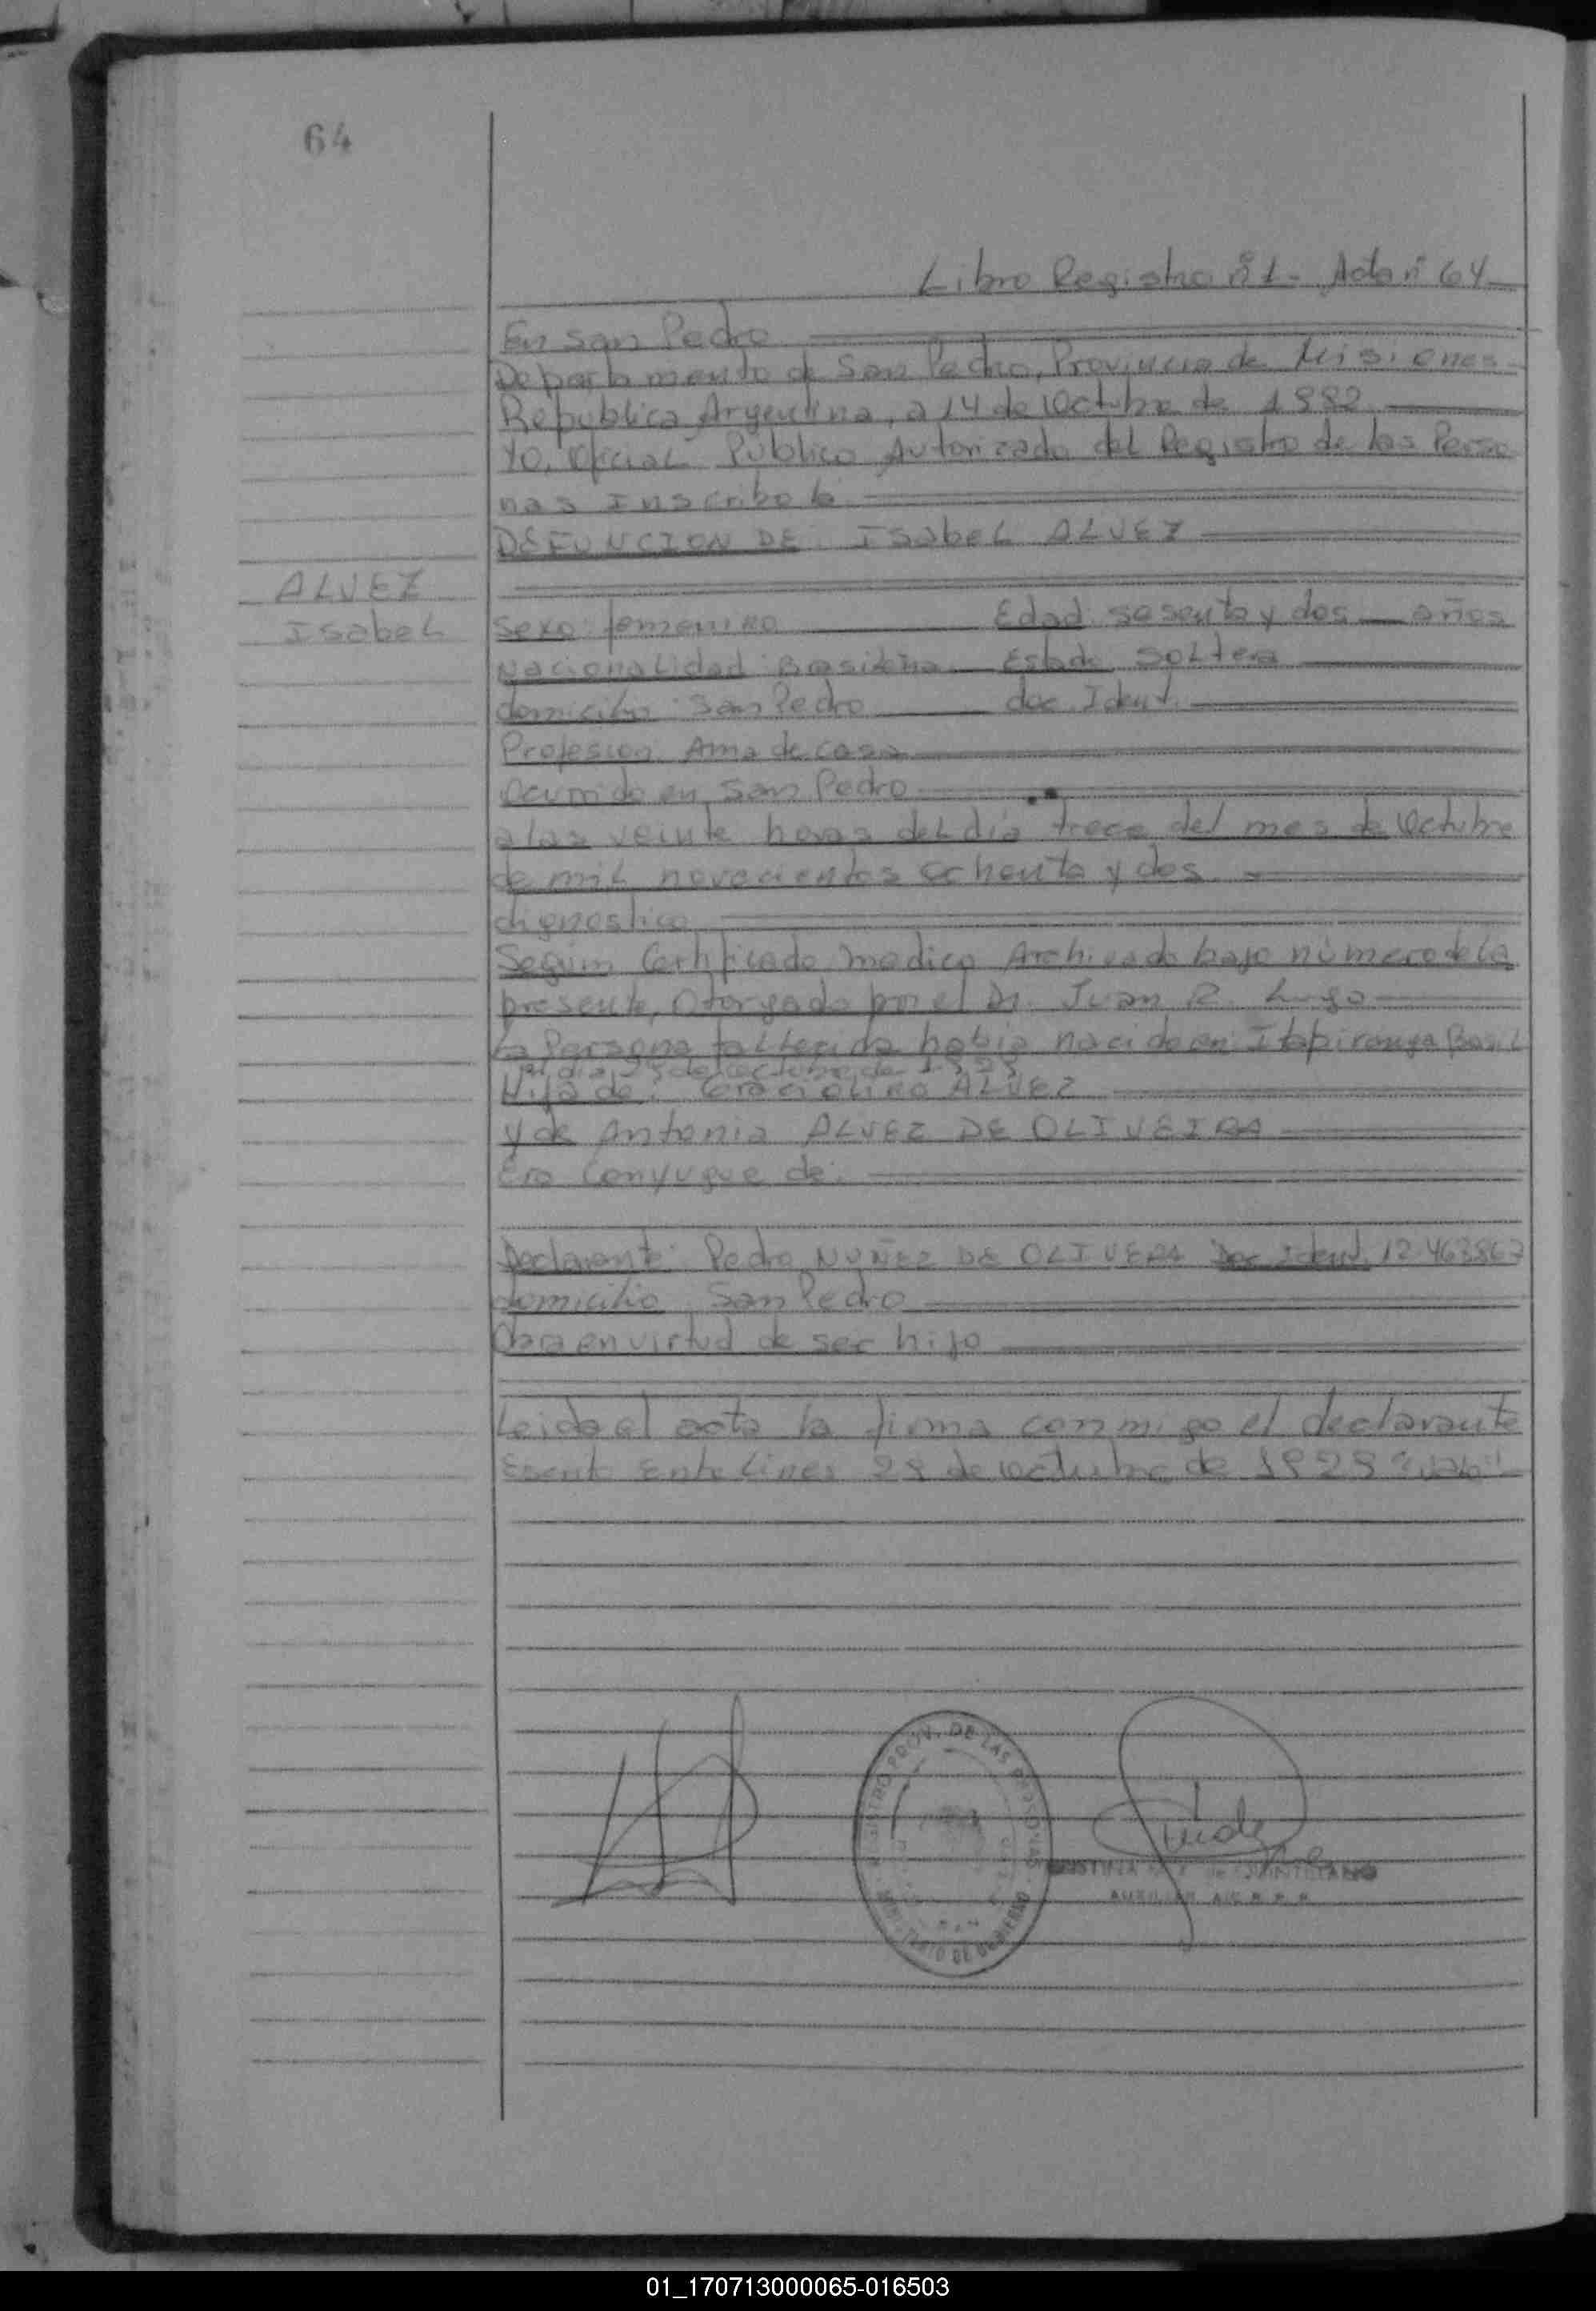 64
Libro Registro nº 1 - Acta nº 64
En San Pedro
Departamento de San Pedro, Provincia de Misiones
Republica Argentina, a 14 de Octubre de 1982
Yo, Oficial Público Autorizado del Registro de las Perso
nas Inscribo la
DEFUNCION DE: ISabeL ALVEZ
ALVEZ
ISabeL
Sexo: femenino Edad sesenta y dos años
Nacionalidad: Brasileña Estado Soltera
domicilio: San Pedro doc. Ident.
Profesion: Ama de casa
Ocurrido en San Pedro
a las veinte horas del dia trece del mes de Octubre
de mil novecientos ochenta y dos.
dignostico
Según Certificado medico Archivado bajo número de la
presente, Otorgado por el Dr. Juan R. Lugo
La Persona fallecida habia nacido en: Itapiranga Basil
el dia de octubre de
Hija de: ALVEZ
y de Antonia ALVEZ DE OLIVEIRA
Era Conyugue de:
Declarante: Pedro NUÑEZ DE OLIVERA Doc Ident. 12.463863
domicilio San Pedro
Obra en virtud de ser hijo
Leida el acta la firma conmigo el declarante
Ente Lines de octubre de
REGISTRO PROV. DE LAS PERSONAS
MINISTERIO DE GOBIERNO
AUXILIAR
01_170713000065-016503